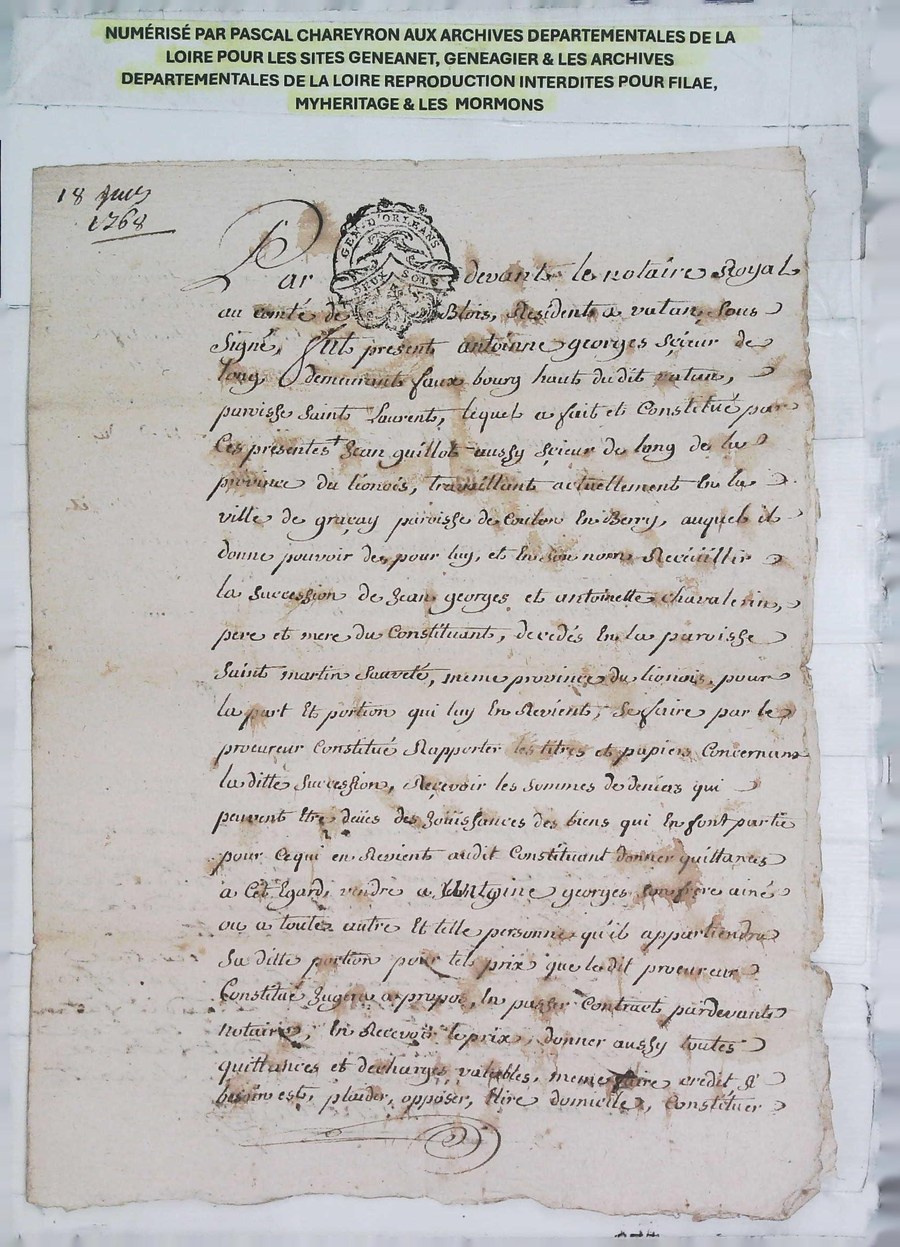 NUMÉRISÉ PAR PASCAL CHAREYRON AUX ARCHIVES DEPARTEMENTALES DE LA
LOIRE POUR LES SITES GENEANET, GENEAGIER & LES ARCHIVES
DEPARTEMENTALES DE LA LOIRE REPRODUCTION INTERDITES POUR FILAE,
MYHERITAGE & LES MORMONS
18
1768
GEN. D'ORLEANS
DEUX SOLS
Par devant le notaire Royal
au comté de Blois, Resident a vatan, sous
Signé, fut present antoinne georges scieur de
long demeurant faux bourg haut dudit vatan,
paroisse Saint Laurent, lequel a fait et Constitué par
Ces presentes + Jean guillot aussy scieur de long de la
province du lionois, travaillant actuellement En la
ville de graçay paroisse de Coulon En Berry, auquel il
donne pouvoir de, pour luy, et En son nom Recüillir
la succession de Jean georges et antoinette chavalerin,
pere et mere du Constituant, decedés En la paroisse
Saint martin Sauveté, meme province du lionois, pour
la part Et portion qui luy En Revient, Se faire par le
procureur Constitué Rapporter les titres et papiers Concernant
la ditte Succession, Recevoir les sommes de deniers qui
peuvent Etre deües des Joüissances des biens qui En font partie
pour Ce qui en Revient audit Constituant donner quittances
a Cet Egard, vendre a Antoine georges son frere ainé
ou a toutes autre Et telle personne qu'il appartiendra
Sa ditte portion pour tel prix que le dit procureur
Constitué Jugera a propos, En passer Contract pardevant
notaire, En Recevoir le prix, donner aussy toutes
quittances et decharges valables, meme faire credit s'il
besoin est, plaider, opposer, Elire domicille, Constituer